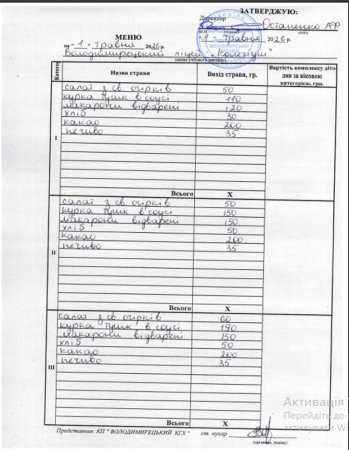 ЗАТВЕРДЖУЮ:
Директор
Остапенко
МЕНЮ
на "1" травня 2026 р.
"1" травня 2026 р.
Володимирецький ліцей
(назва учбового закладу)
Назва страви
Вихід страви, гр.
Вартість комплекту діто
дня за віковою
категорією, грн.
I
салат з св. огірків 50
курка туш. в соусі 110
макарони відварені 120
хліб 30
какао 200
печиво 35
Всього Х
II
салат з св. огірків 50
курка туш. в соусі 150
макарони відварені 150
хліб 50
какао 200
печиво 35
Всього Х
III
салат з св. огірків 60
курка туш. в соусі 190
макарони відварені 150
хліб 50
какао 200
печиво 35
Всього Х
Представник КП " ВОЛОДИМИРЕЦЬКИЙ КГХ " ст. кухар
Активація
Перейдіть до
активувати Wi